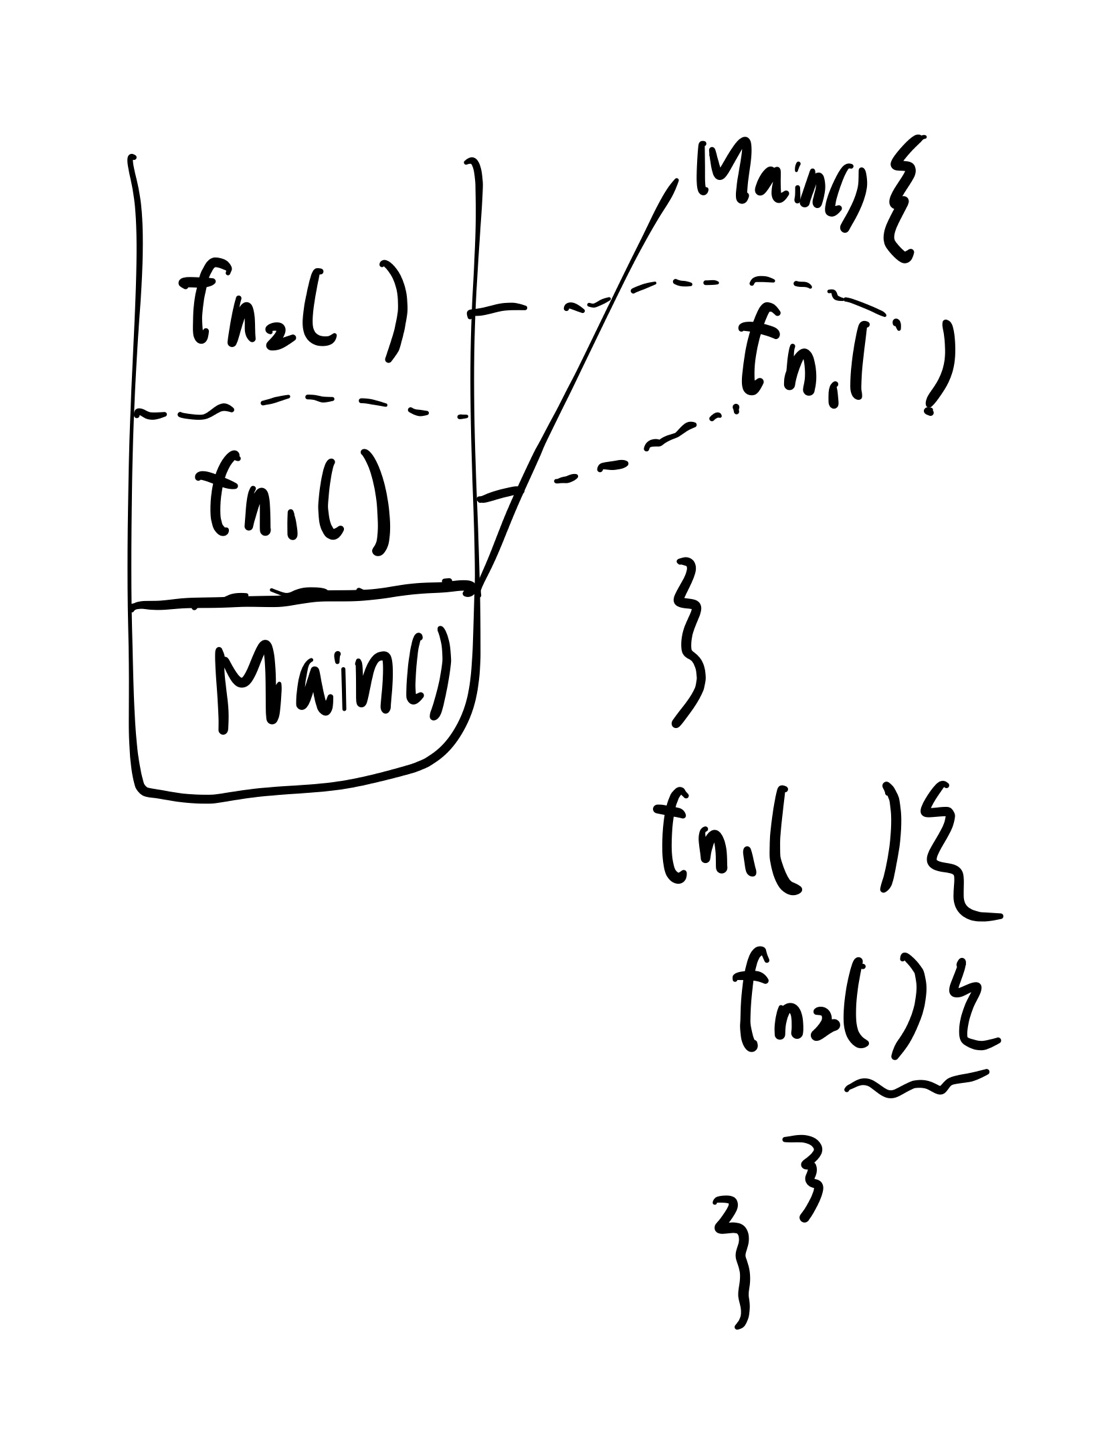 fn₂( )
fn₁( )
Main()
Main() {
fn₁( )
}
fn₁( ) {
fn₂( ) {
}
}